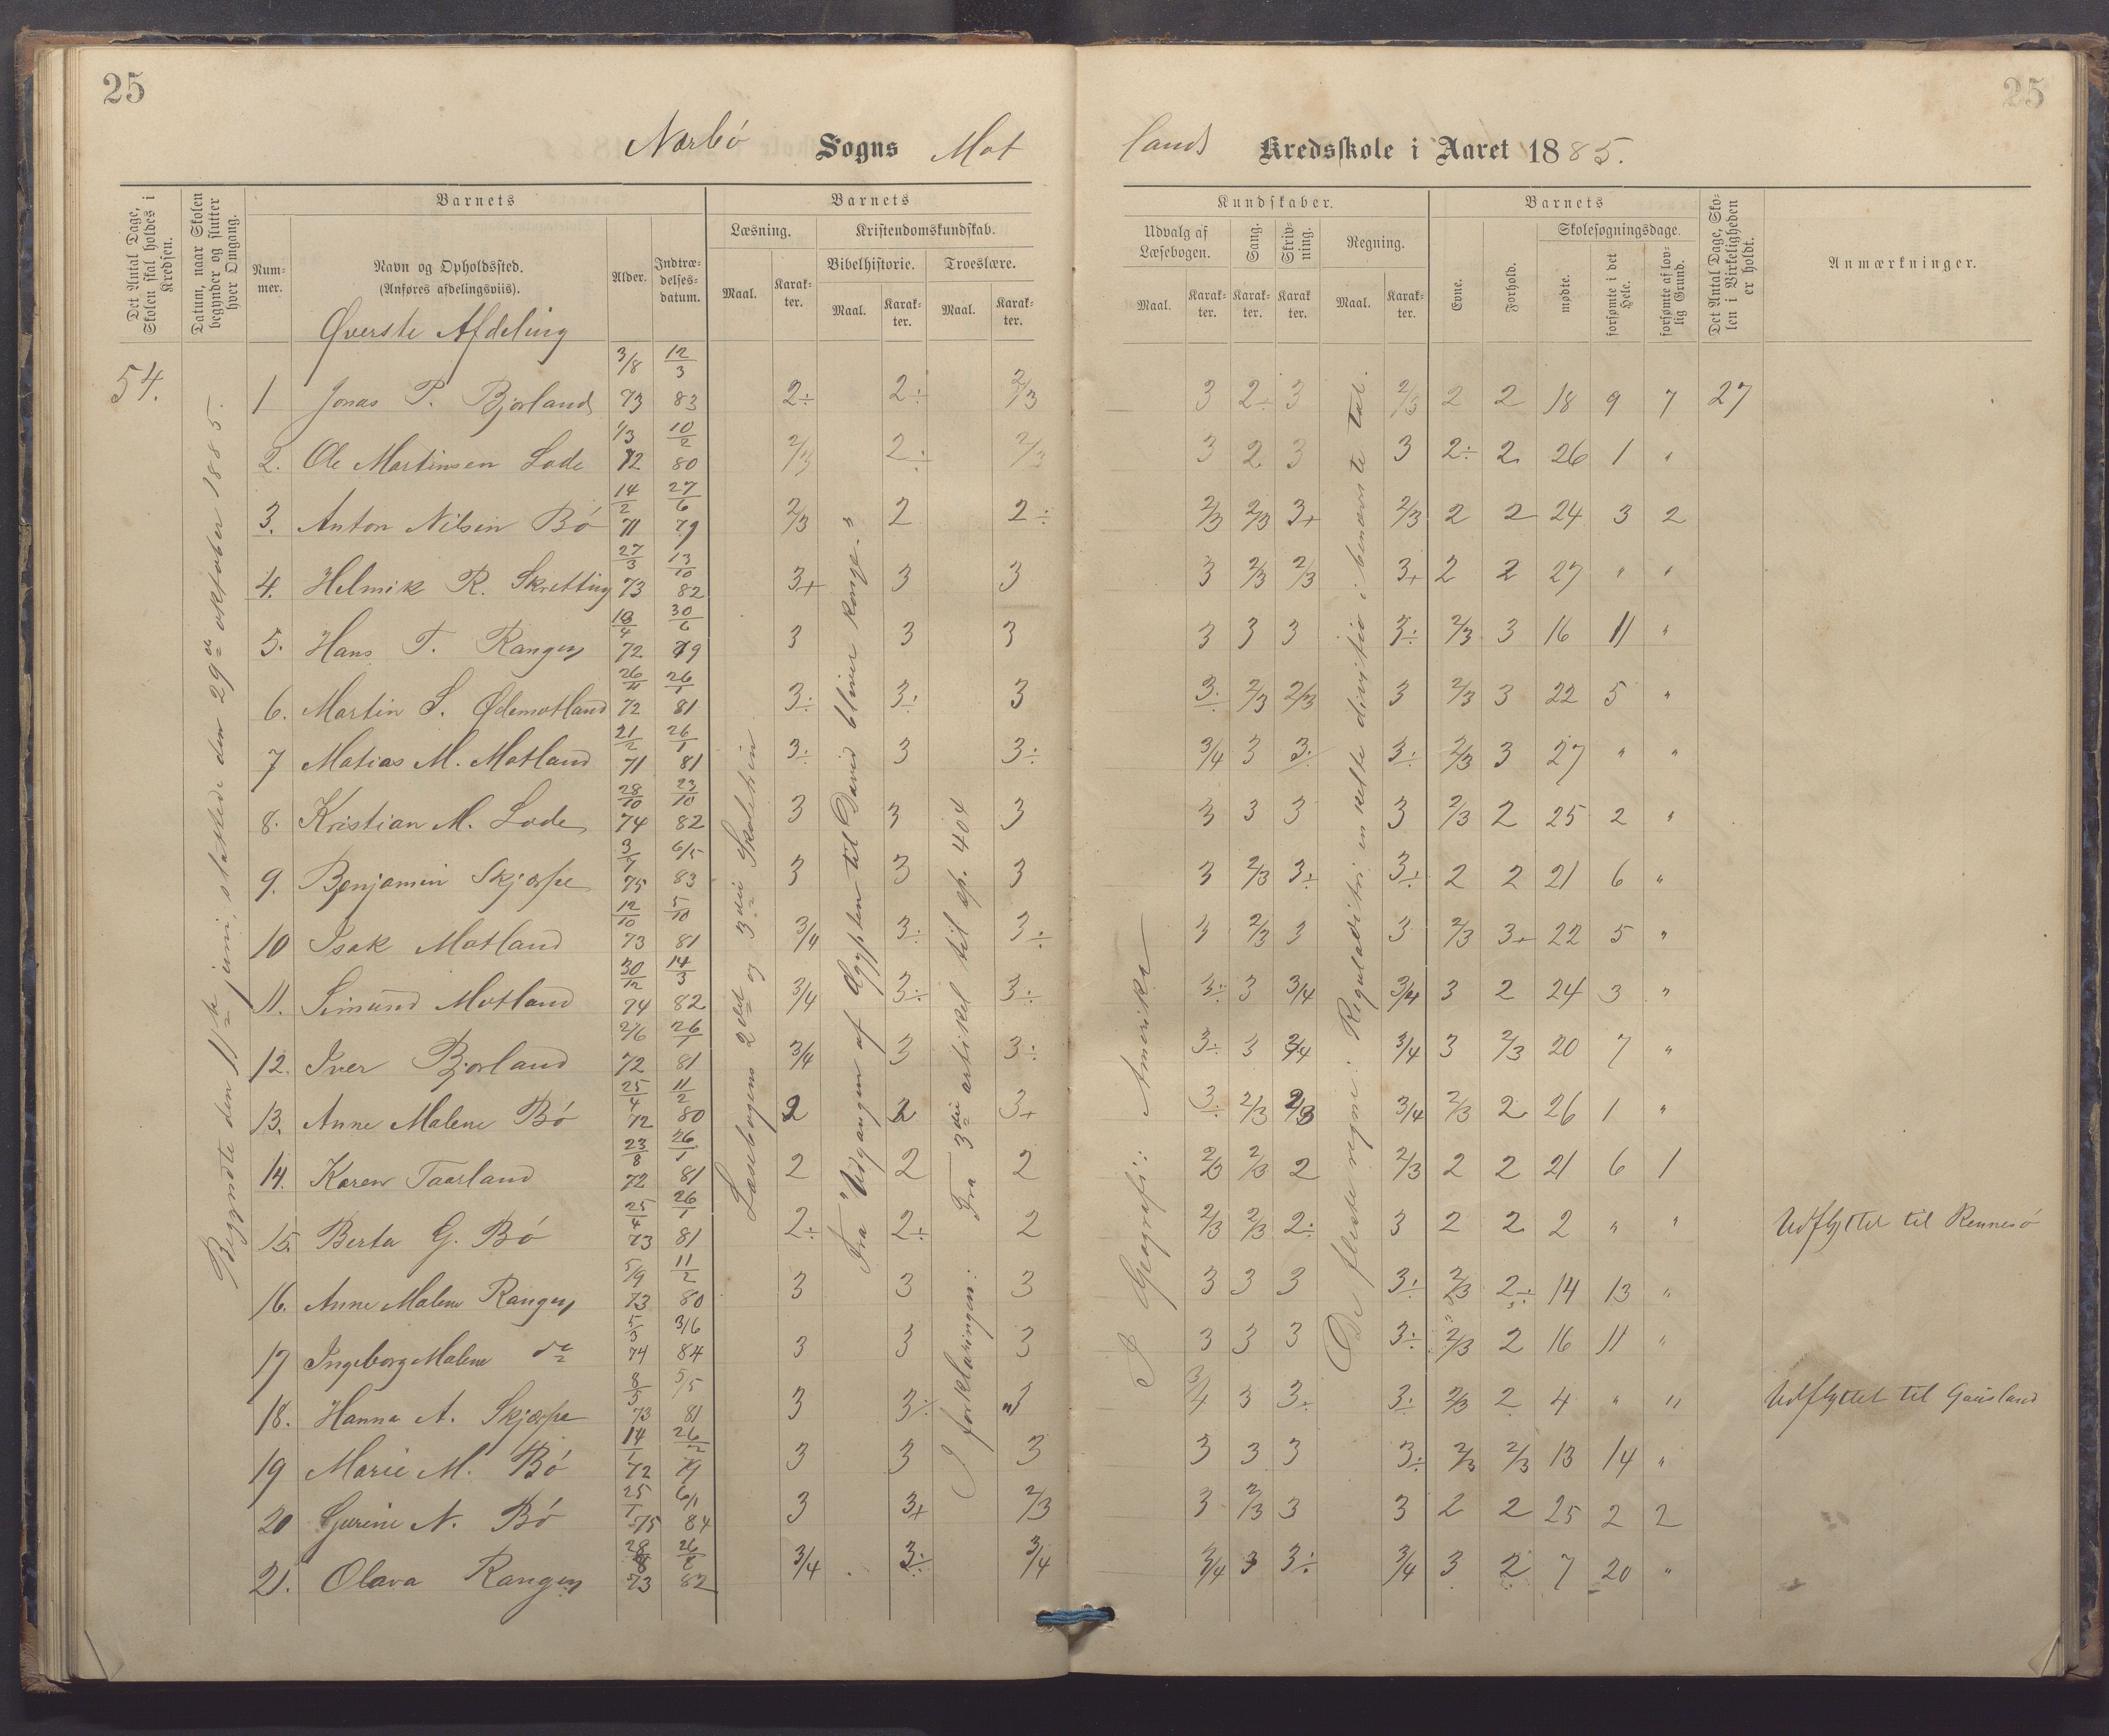 25
25
Nærbø Sogns Mot
lands Kredsskole i Aaret 1885.
Det Antal Dage, Skolen skal holdes i Kredsen.
Datum, naar Skolen begynder og slutter hver Omgang.
Barnets
Num-mer.
Navn og Opholdssted.
(Anføres afdelingsviis).
Alder.
Indtræ-delses-datum.
Barnets
Læsning.
Maal.
Karak-ter.
Kristendomskundskab.
Bibelhistorie.
Maal.
Karak-ter.
Troeslære.
Maal.
Karak-ter.
Kundskaber.
Udvalg af Læsebogen.
Maal.
Karak-ter.
Sang.
Karak-ter.
Skriv-ning.
Karak ter.
Regning.
Maal.
Karak-ter.
Barnets
Evne.
Forhold.
Skolesøgningsdage.
mødte.
forsømte i det Hele.
forsømte af lov-lig Grund.
Det Antal Dage, Sko-len i Virkeligheden er holdt.
Anmærkninger.
Øverste Afdeling
54.
Begyndte den 11te juni, sluttede den 29de oktober 1885.
Læsebogens 2det og 3die Skoletrin
Fra "Udgangen af Ægypten til David bliver konge."
I forklaringen: Fra 3die artikel til sp. 404
I Geografi: Amerika
De fleste regne: Reguladitri en kelte division i benævnte tal.
1 Jonas P. Bjorland 3/8 73 12/3 83 2÷ 2÷ 2/3 3 2÷ 3 2/3 2 2 18 9 7 27
2. Ole Martinsen Lode 1/3 72 10/2 80 2/3 2÷ 2/3 3 2 3 3 2÷ 2 26 1 "
3. Anton Nilsen Bø 14/2 71 27/6 79 2/3 2 2÷ 2/3 2/3 3+ 2/3 2 2 24 3 2
4. Helmik R. Skretting 27/3 73 13/10 82 3+ 3 3 3 2/3 2/3 3+ 2 2 27 " "
5. Hans T. Rangen 72 30/6 79 3 3 3 3 3 3 3÷ 2/3 3 16 11 "
6. Martin S. Ødemotland 26/11 72 26/1 81 3÷ 3÷ 3 3÷ 2/3 2/3 3 2/3 3 22 5 "
7 Matias M. Motland 21/2 71 26/1 81 3÷ 3 3÷ 3/4 3 3÷ 3÷ 2/3 3 27 " "
8. Kristian M. Lode 28/10 74 23/10 82 3 3 3 3 3 3 3 2/3 2 25 2 "
9. Benjamin Skjærpe 75 6/5 83 3 3 3 3 2/3 3÷ 3÷ 2 2 21 6 "
10 Isak Motland 12/10 73 5/10 81 3/4 3÷ 3÷ 3 2/3 3 3 2/3 3+ 22 5 "
11. Simund Motland 30/12 74 14/3 82 3/4 3÷ 3÷ 3÷ 3 3/4 3/4 3 2 24 3 "
12. Iver Bjorland 2/6 72 26/1 81 3/4 3 3÷ 3÷ 3 3/4 3/4 3 2/3 20 7 "
13. Anne Malene Bø 25/4 72 11/2 80 2 2 3+ 3÷ 2/3 2/3 3/4 2/3 2 26 1 "
14. Karen Taarland 23/8 72 26/1 81 2 2 2 2/3 2/3 2 2/3 2 2 21 6 1
15. Berta G. Bø 25/4 73 26/1 81 2÷ 2÷ 2 2/3 2/3 2÷ 3 2 2 2 " " Udflyttet til Rennesø
16. Anne Malene Rangen 5/9 73 11/2 80 3 3 3 3 3 3 3÷ 2/3 2÷ 14 13 "
17 Ingeborg Malene do 5/3 74 3/6 84 3 3 3 3 3 3 3÷ 2/3 2 16 11 "
18. Hanna A. Skjærpe 8/5 73 5/5 81 3 3÷ 3/4 3 3+ 3÷ 2/3 2 4 " " Udflyttet til Gausland
19 Marie M. Bø 14/1 72 79 3 3 3 3 3 3 3÷ 2/3 2/3 13 14 "
20 Gurine N. Bø 25/1 75 6/11 84 3 3+ 2/3 3 2/3 3 3 2 2 25 2 2
21. Olava Rangen 28/8 73 82 3/4 3÷ 3/4 3/4 3 3÷ 3/4 3 2 7 20 "